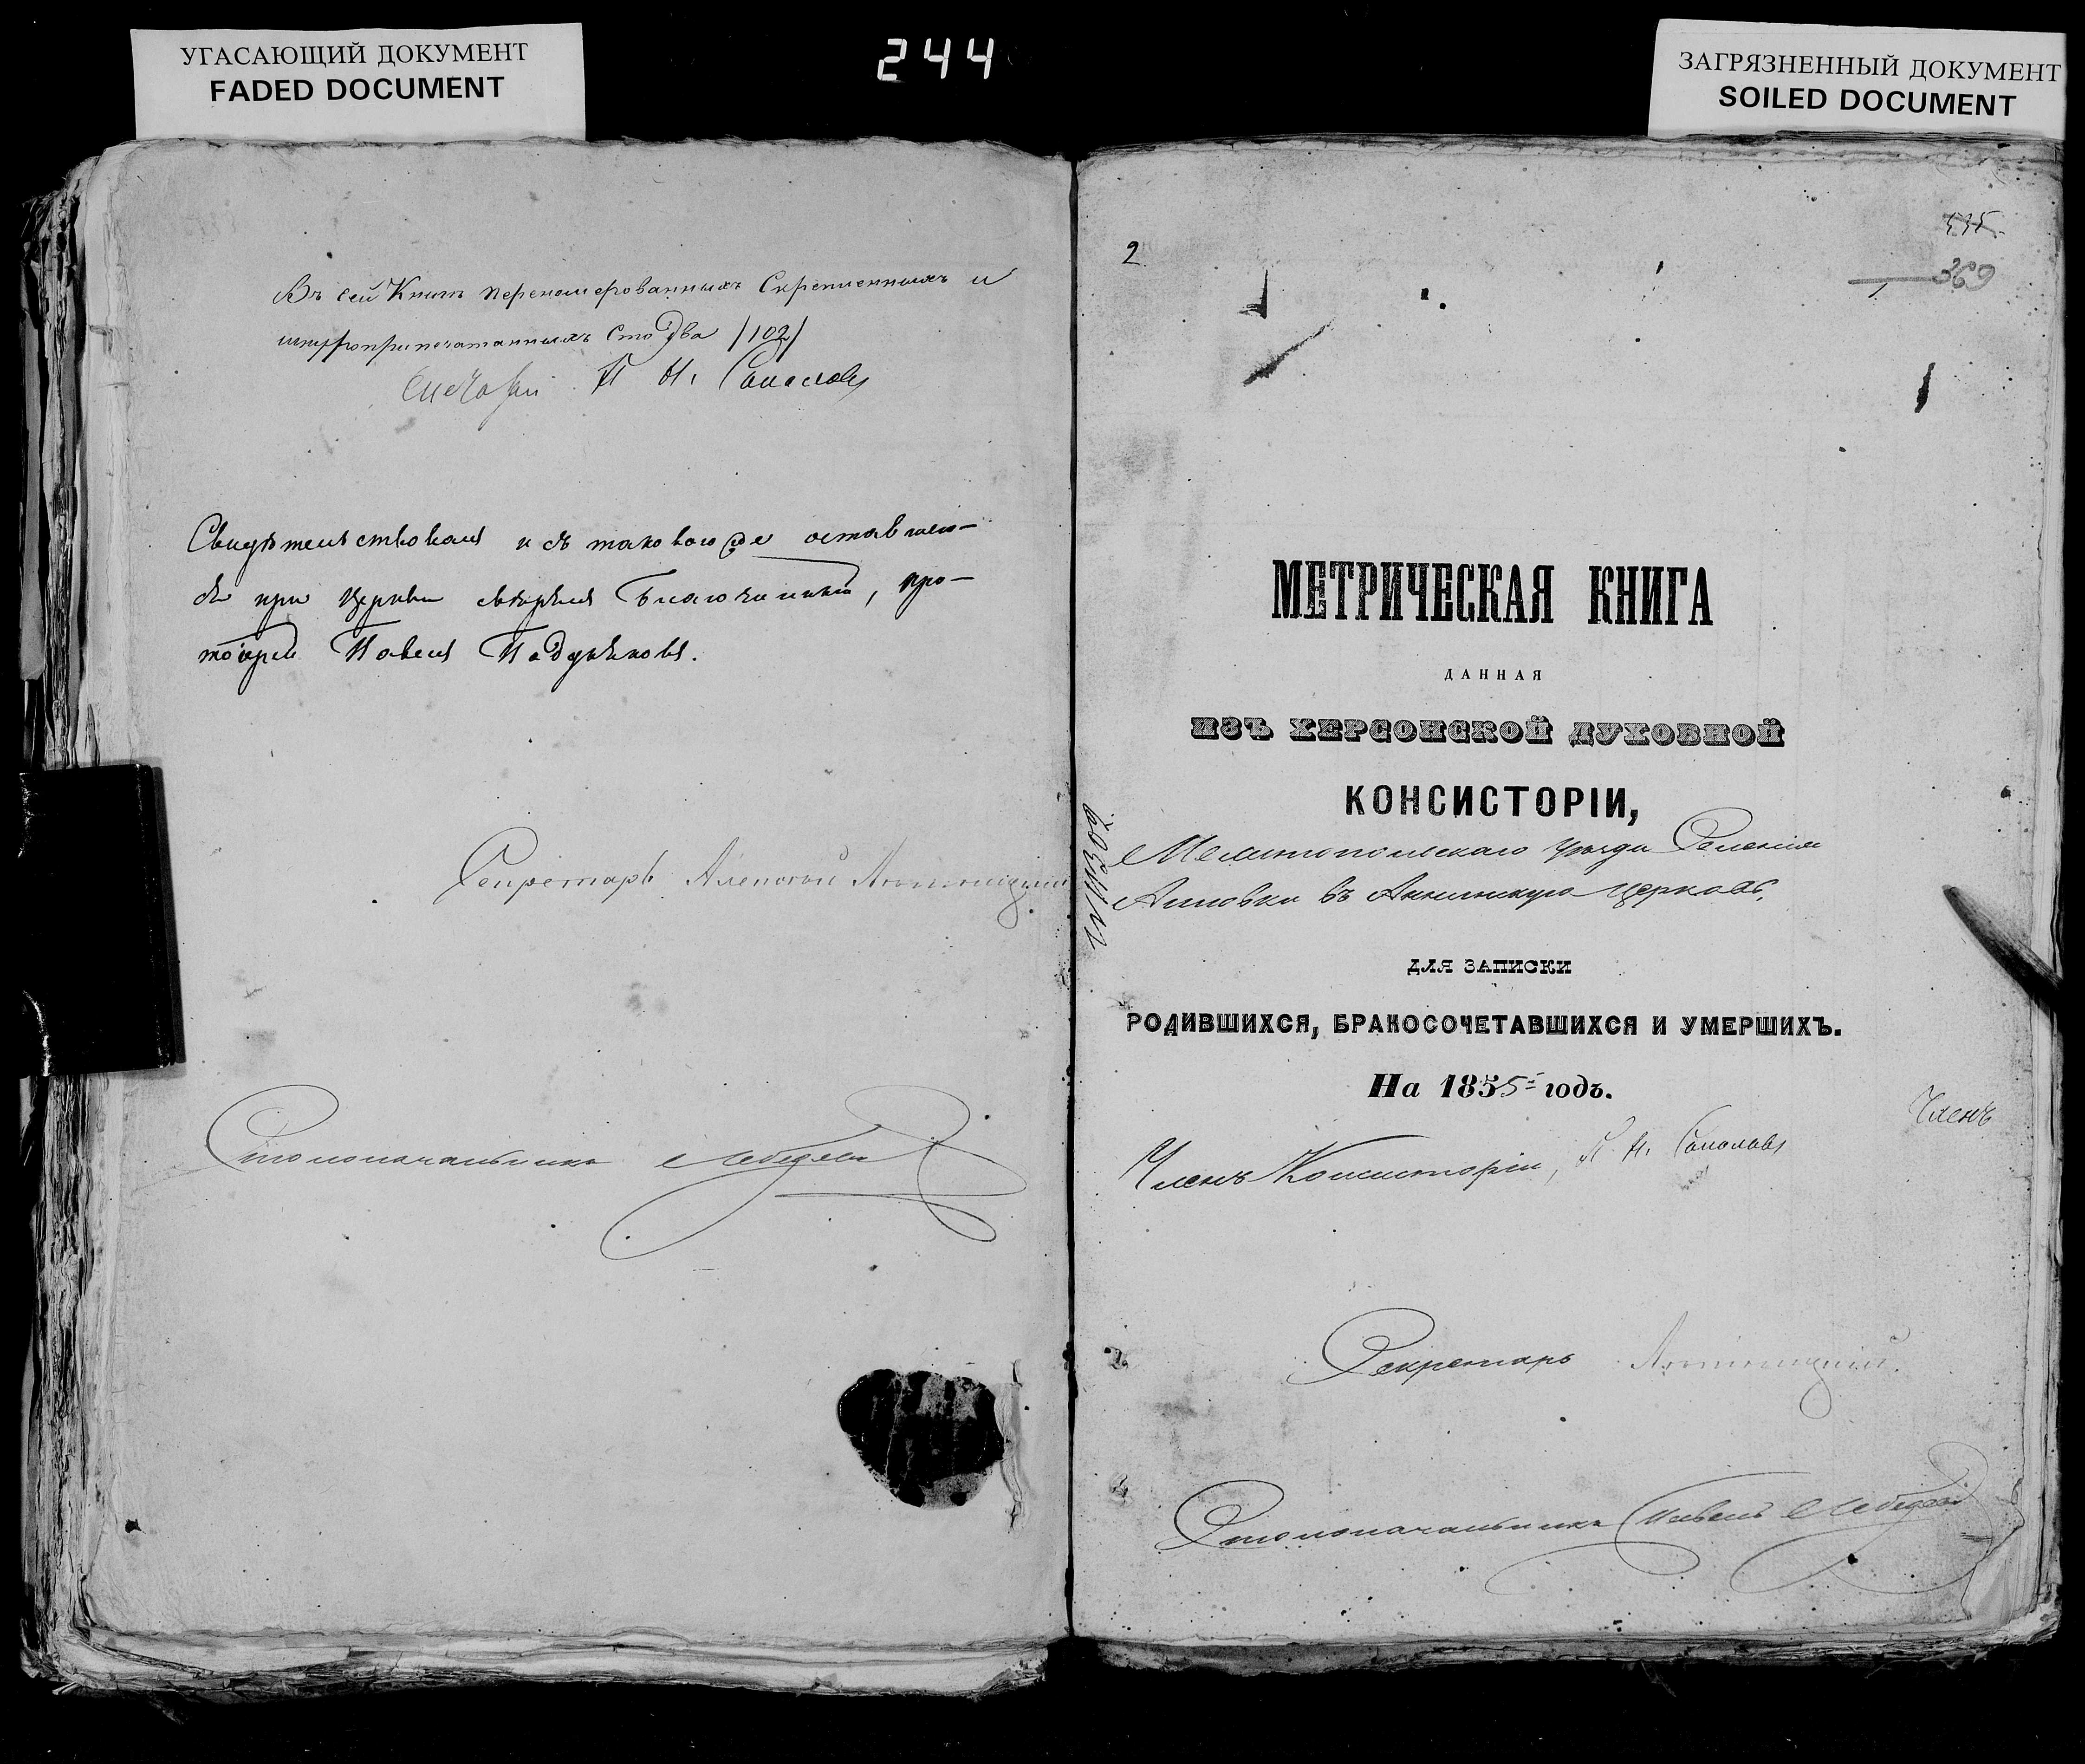 УГАСАЮЩИЙ ДОКУМЕНТ
FADED DOCUMENT
244
ЗАГРЯЗНЕННЫЙ ДОКУМЕНТ
SOILED DOCUMENT
Въ сей Книгѣ переномерованныхъ Скрепленныхъ и
шнуроприпечатанныхъ Сто два /102/
Соколовъ
Свидѣтельствовалъ и съ таковою де оставшею-
ся при Церкви свѣрялъ Благочинный, про-
тоіерей Павелъ
Секретарь Алексѣй
Столоначальникъ Лебедевъ
2
369
МЕТРИЧЕСКАЯ КНИГА
ДАННАЯ
ИЗЪ ХЕРСОНСКОЙ ДУХОВНОЙ
КОНСИСТОРІИ,
Мелитопольскаго уѣзда Селенія
Анновки въ Аннинскую церковь.
ДЛЯ ЗАПИСКИ
РОДИВШИХСЯ, БРАКОСОЧЕТАВШИХСЯ И УМЕРШИХЪ.
На 1855й годъ.
Членъ
Членъ Консисторіи, Соколовъ
Секретарь
Столоначальникъ Павелъ Лебедевъ